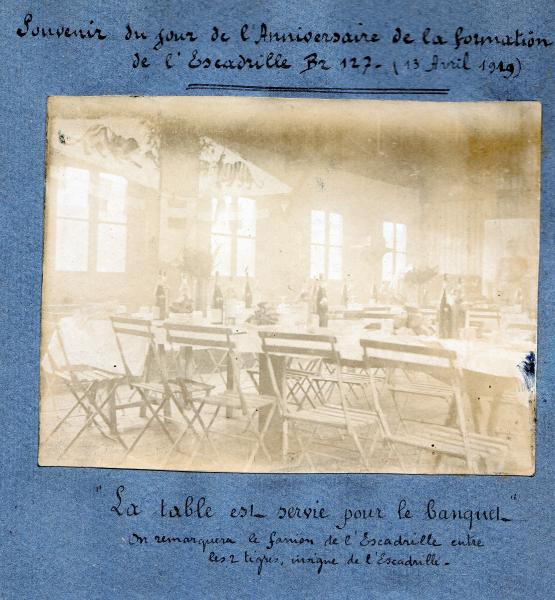 Souvenir du jour de l'Anniversaire de la formation
de l'Escadrille Br 127 - (13 Avril 1919)
"La table est servie pour le banquet"
On remarquera le fanion de l'Escadrille entre
les 2 tigres, insigne de l'Escadrille -